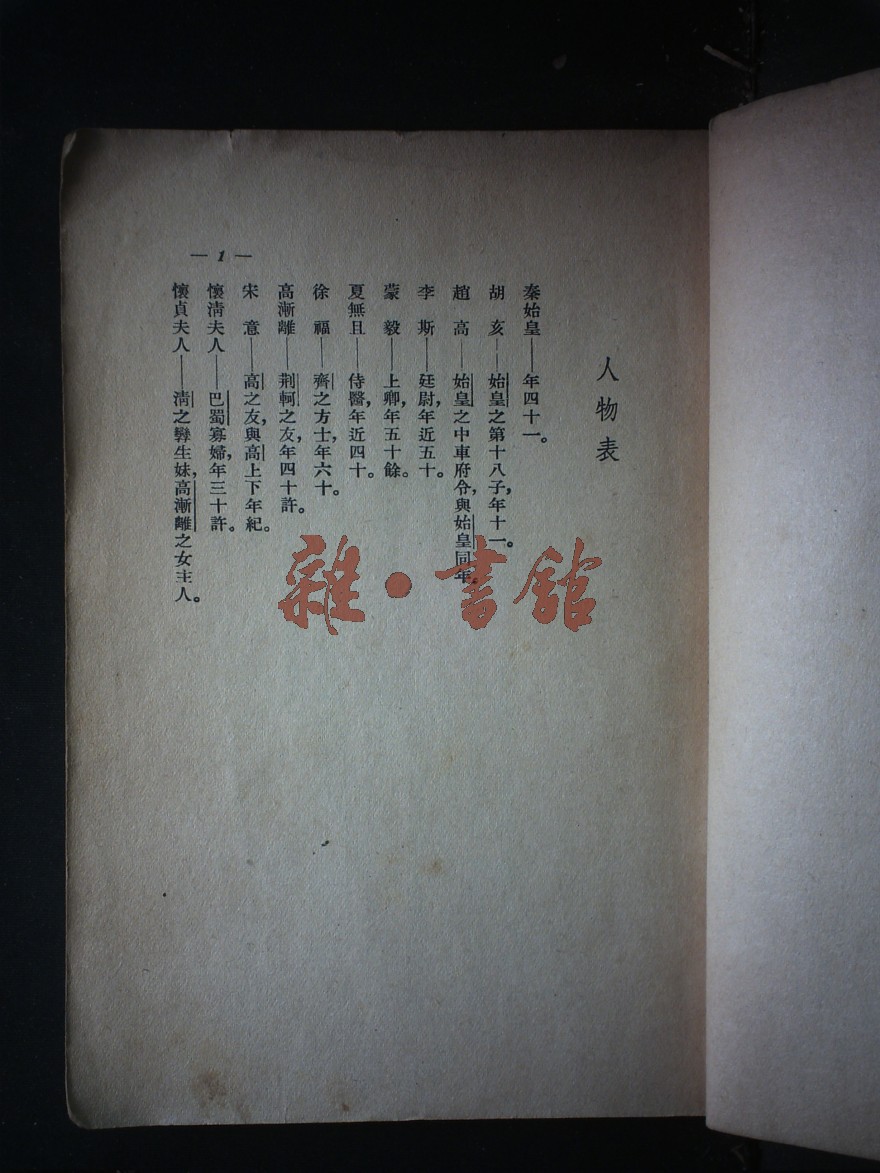 人物表
秦始皇——年四十一。
胡　亥——始皇之第十八子，年十一。
趙　高——始皇之中車府令，與始皇同年。
李　斯——廷尉，年近五十。
蒙　毅——上卿，年五十餘。
夏無且——侍醫，年近四十。
徐　福——齊之方士，年六十。
高漸離——荆軻之友，年四十許。
宋　意——高之友，與高上下年紀。
懷清夫人——巴蜀寡婦，年三十許。
懷貞夫人——清之孿生妹，高漸離之女主人。
— 1 —
雜·書館